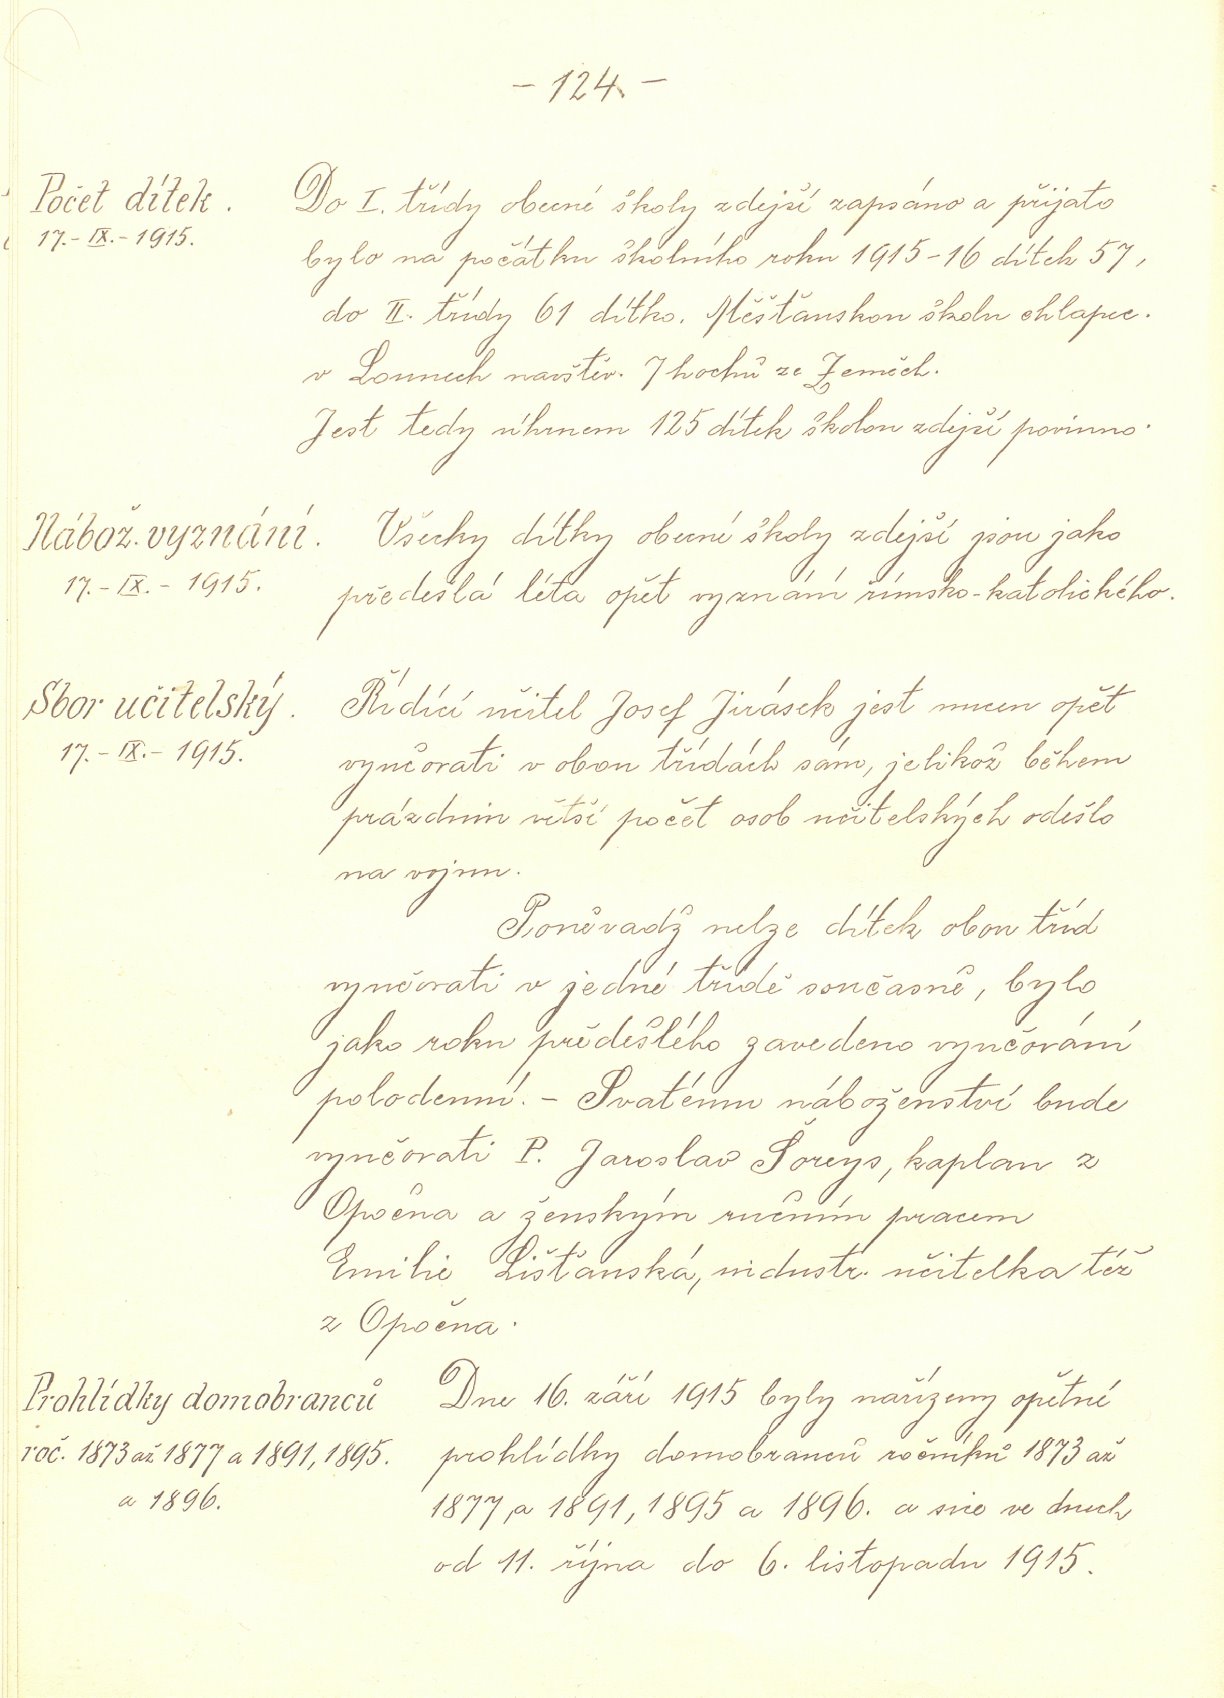 - 124. -
Počet dítek.
17.-IX.-1915.
Do I. třídy obecné školy zdejší zapsáno a přijato
bylo na počátku školního roku 1915-16 dítek 57,
do II. třídy 61 dítko. Měšťanskou školu chlapec.
v Lounech navštěv. 7 hochů ze Zeměch.
Jest tedy úhrnem 125 dítek školou zdejší povinno.
Nábož. vyznání.
17.-IX.-1915.
Všecky dítky obecné školy zdejší jsou jako
předešlá léta opět vyznání římsko-katolického.
Sbor učitelský.
17.-IX.-1915.
Řídící učitel Josef Jirásek jest nucen opět
vyučovati v obou třídách sám, jelikož během
prázdnin větší počet osob učitelských odešlo
na vojnu.
Poněvadž nelze dítek obou tříd
vyučovati v jedné třídě současně, bylo
jako roku předešlého zavedeno vyučování
polodenní. - Svatému náboženství bude
vyučovati P. Jaroslav Šoreys, kaplan z
Opočna a ženským ručním pracem
Emilie Lišťanská, industr. učitelka též
z Opočna.
Prohlídky domobranců
roč. 1873 až 1877 a 1891, 1895.
a 1896.
Dne 16. září 1915 byly nařízeny opětné
prohlídky domobranců ročníků 1873 až
1877, a 1891, 1895 a 1896. a sice ve dnech
od 11. října do 6. listopadu 1915.